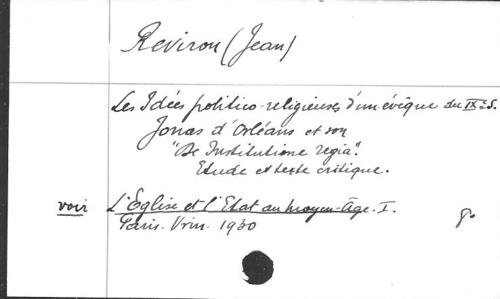 Reviron (Jean)
Les Idées politico-religieuses d'un évêque du IXe S.
Jonas d'Orléans et son
"De Institutione regia".
Etude et texte critique.
voir L'Eglise et l'Etat au moyen-Âge. I. 8º
Paris. Vrin. 1930